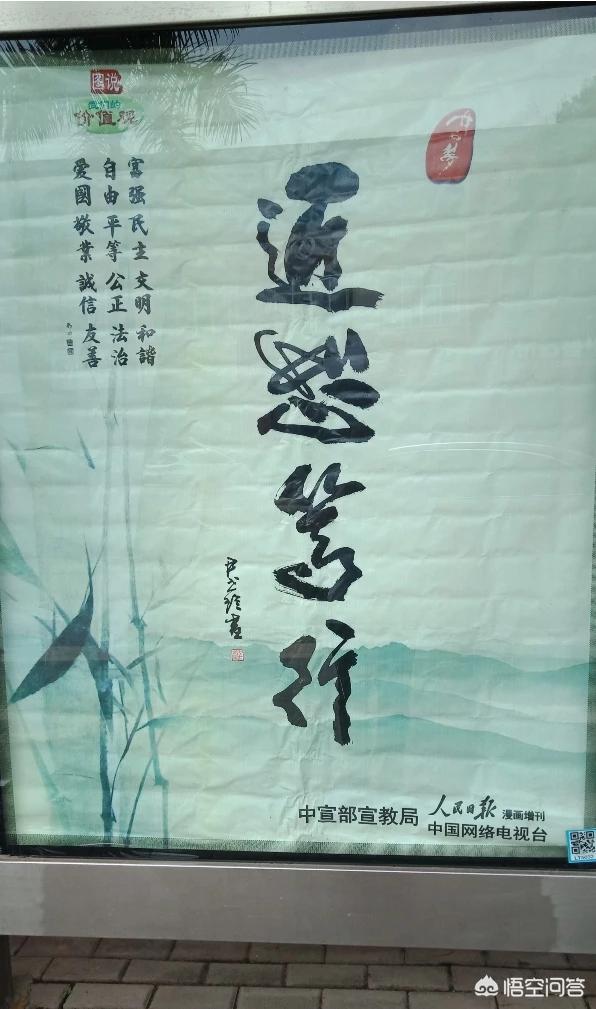 图说
我们的
价值观
中国梦
富强民主文明和諧
自由平等公正法治
愛國敬業誠信友善
行
中宣部宣教局
人民日报 漫画增刊
中国网络电视台
悟空问答